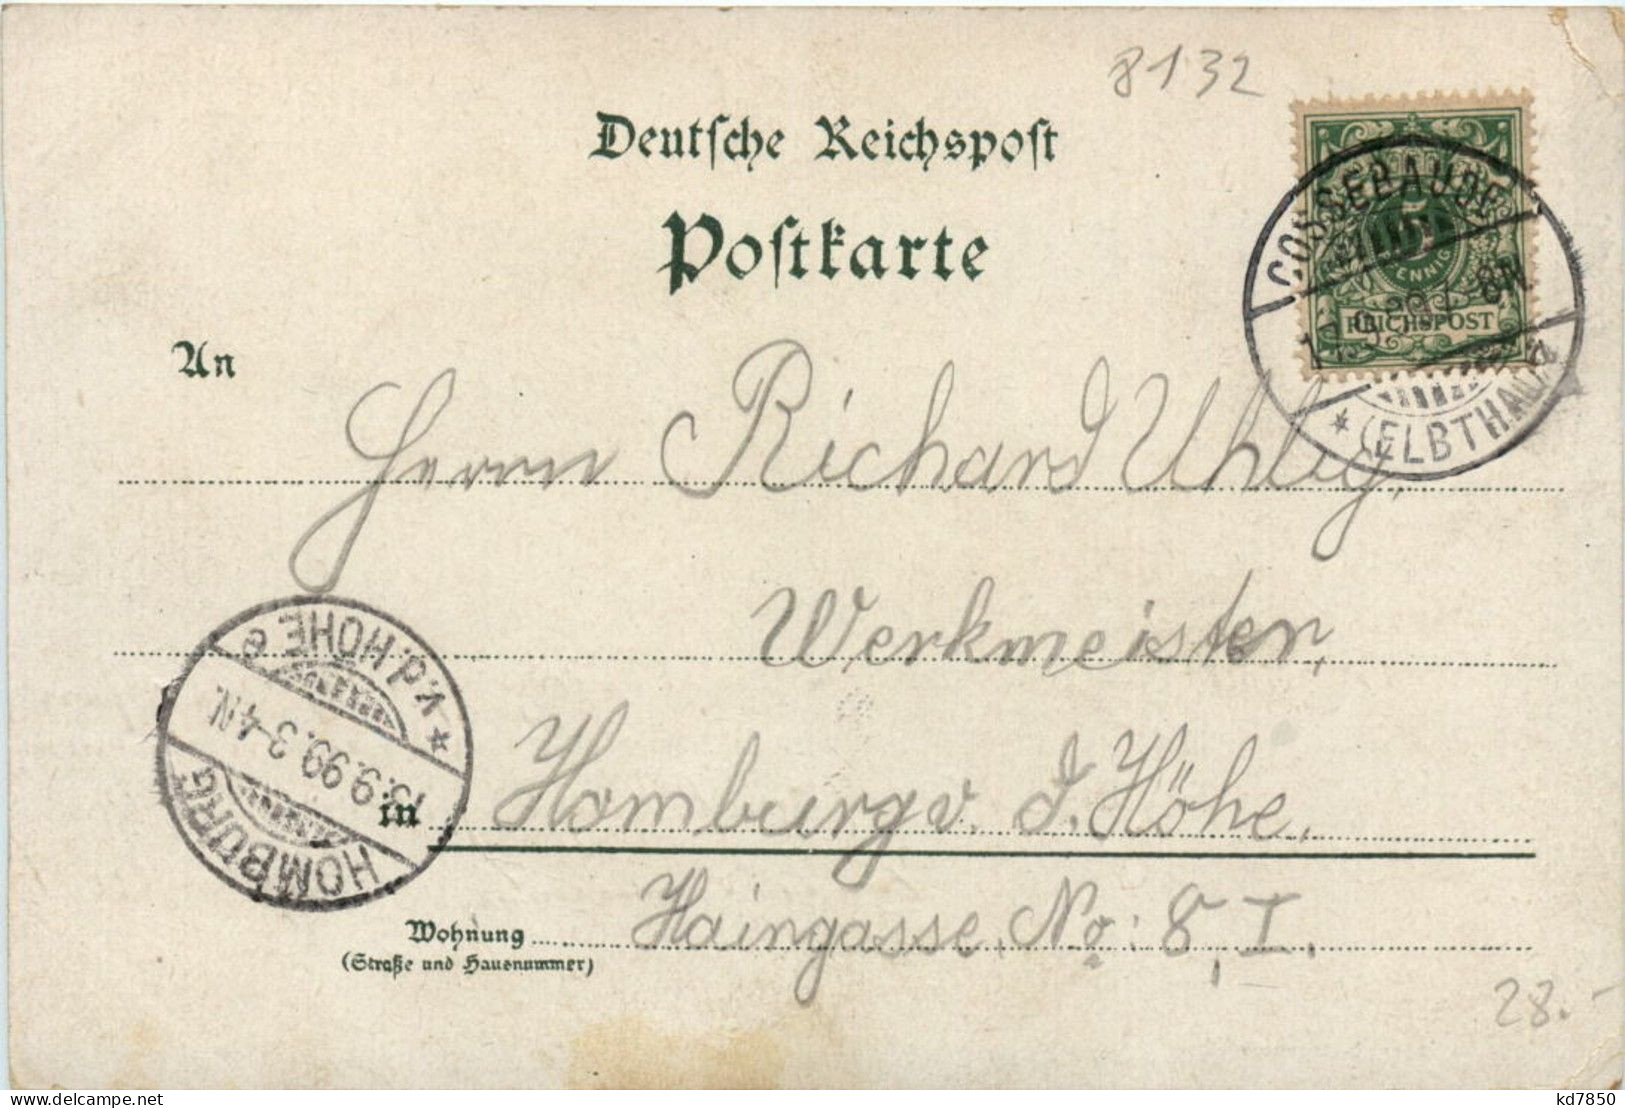 8132
Deutsche Reichspost
Postkarte
COSSEBAUDE
5
PFENNIG
REICHSPOST
8N.
* (ELBTHAL) a
An
Herrn Richard Uhlig,
Werkmeister,
v.d. HÖHE e *
13.9.99. 3-4N.
HOMBURG
in Homburg v. d. Höhe,
Wohnung Haingasse, No. 8, I.
(Straße und Hausnummer)
28.-
delcampe.net
kd7850